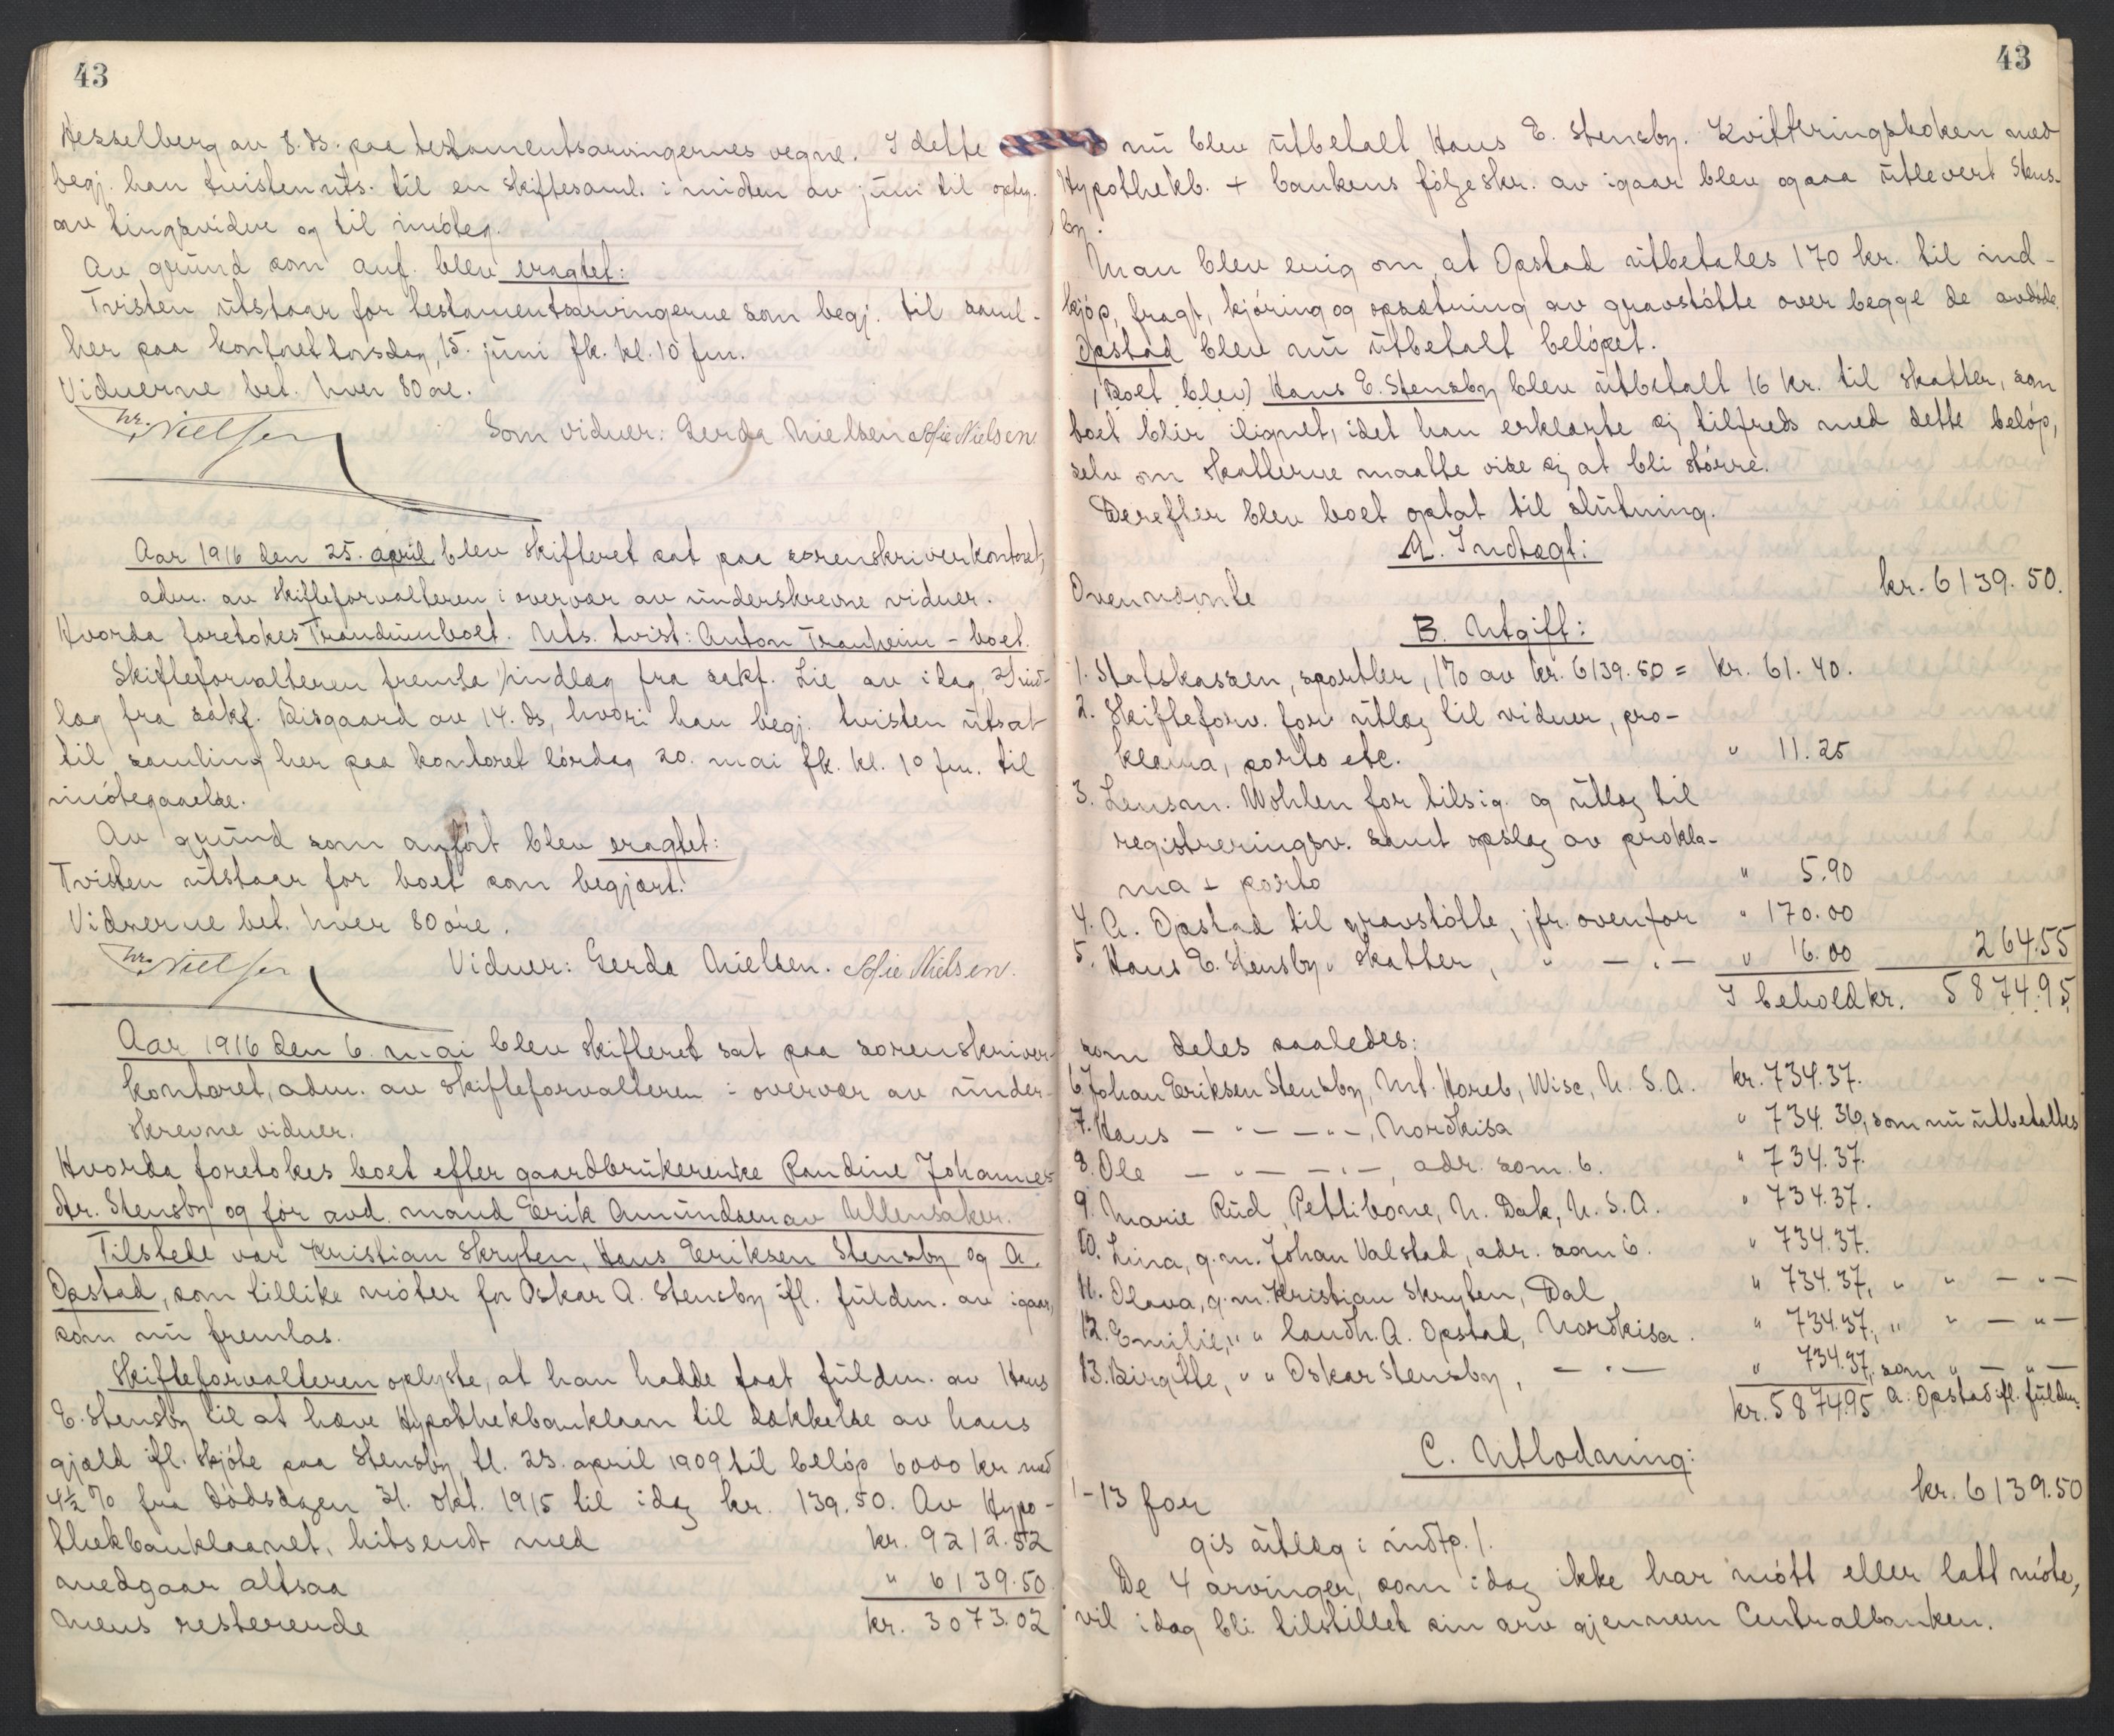 43
Hesselberg av 8. ds. paa testamentsarvingernes vegne. I dette
begj. han tvisten uts. til en skiftesaml. i midten av juni til optg.
av tingsvidne og til imøteg.
Av grund som anf. blev eragtet:
Tvisten utstaar for testamentsarvingerne som begj. til saml.
her paa kontoret torsdag 15. juni fk. kl. 10 fm.
Vidnerne bet. hver 80 øre.
Nielsen Som vidner: Gerda Nielsen Sofie Nielsen
Aar 1916 den 25. april blev skifteret sat paa sorenskriverkontoret,
adm. av skifteforvalteren i overvær av underskrevne vidner.
Hvorda foretokes Trandumboet. Uts. tvist: Anton Tranheim - boet.
Skifteforvalteren fremla indlæg fra sakf. Lie av idag. Ind-
læg fra sakf. Bisgaard av 14. ds, hvori han begj. tvisten utsat
til samling her paa kontoret lørdag 20. mai fk. kl. 10 fm. til
imøtegaaelse.
Av grund som anført blev eragtet:
Tvisten utstaar for boet som begjært.
Vidnerne bet. hver 80 øre.
Nielsen Vidner: Gerda Nielsen. Sofie Nielsen.
Aar 1916 den 6. mai blev skifteret sat paa sorenskriver-
kontoret, adm. av skifteforvalteren i overvær av under-
skrevne vidner.
Hvorda foretokes boet efter gaardbrukerenke Randine Johannes-
dtr. Stensby og før avd. mand Erik Amundsen av Ullensaker.
Tilstede var Kristian Skryten, Hans Eriksen Stensby og A.
Opstad, som tillike møter for Oskar A. Stensby ifl. fuldm. av igaar,
som nu fremlas.
Skifteforvalteren oplyste, at han hadde faat fuldm. av Hans
E. Stensby til at hæve Hypothekbanklaan til dækkelse av hans
gjæld ifl. skjøte paa Stensby, tl. 23. april 1909 til beløp 6000 kr med
4½ % fra dødsdagen 31. okt. 1915 til idag kr. 139.50. Av Hypo-
thekbanklaanet, hitsendt med kr. 9212.52
medgaar altsaa " 6139.50
mens resterende kr. 3073.02
43
nu blev utbetalt Hans E. Stensby. Kvitteringsboken med
Hypothekb. + bankens følgeskr. av igaar blev ogsaa utlevert Stens-
by.
Man blev enig om, at Opstad utbetales 170 kr. til ind-
kjøp, fragt, kjøring og opsætning av gravstøtte over begge de avdøde.
Opstad blev nu utbetalt beløpet.
(Boet blev) Hans E. Stensby blev utbetalt 16 kr. til skatter, som
boet blir ilignet, idet han erklærte sig tilfreds med dette beløp,
selv om skatterne maatte vise sig at bli større.
Derefter blev boet optat til slutning.
A. Indtægt:
Ovennævnte kr. 6139.50.
B. Utgift:
1. Statskassen, sportler, 1% av kr. 6139.50 = kr. 61.40.
2. Skifteforv. for utlæg til vidner, pro-
klama, porto etc. " 11.25
3. Lensm. Wohlen for tilsig. og utlæg til
registreringsv. samt opslag av prokla-
ma + porto " 5.90
4. A. Opstad til gravstøtte, jfr. ovenfor " 170.00
5. Hans E. Stensby " skatter, " — " — " 16.00 264.55
I behold kr. 5874.95
som deles saaledes:
6. Johan Eriksen Stensby, Mt. Horeb, Wisc, U. S. A. kr. 734.37.
7. Hans — " — — " —, Nordkisa " 734.36, som nu utbetaltes
8. Ole — " — — " —, adr. som 6. " 734.37.
9. Marie Rud, Pettibone, N. Dak, U. S. A. " 734.37.
10. Lina, g. m. Johan Valstad, adr. som 6. " 734.37.
11. Olava, g. m. Kristian Skryten, Dal " 734.37, " " — " —
12. Emilie, " " landh. A. Opstad, Nordkisa. " 734.37, " " — " —
13. Birgitte, " " Oskar Stensby, — " — " 734.37, som " — " —
kr. 5874.95 A. Opstad ifl. fuldm.
C. Utlodning:
1-13 faar kr. 6139.50
gis utlæg i indtp. 1.
De 4 arvinger, som idag ikke har møtt eller latt møte,
vil idag bli tilstillet sin arv gjennem Centralbanken.